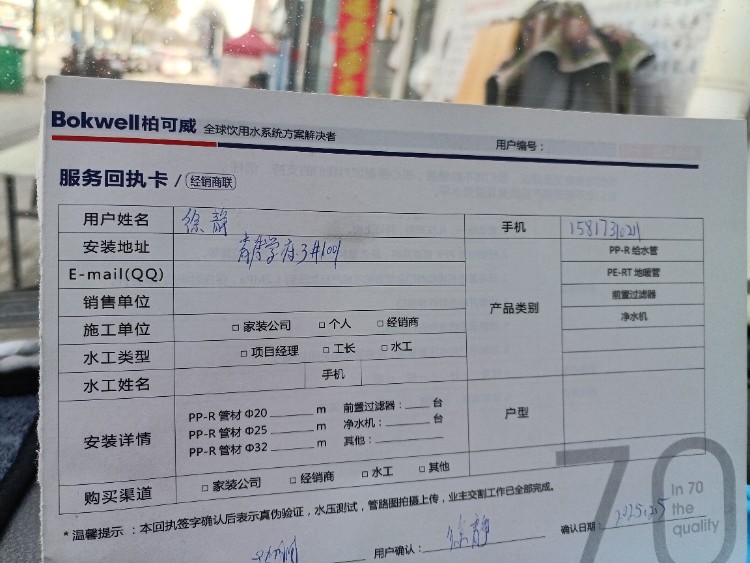 Bokwell柏可威 全球饮用水系统方案解决者
用户编号：
服务回执卡 / 经销商联
用户姓名 徐静 手机
安装地址 3#1001 PP-R 给水管
E-mail(QQ) PE-RT 地暖管
销售单位 产品类别 前置过滤器
施工单位 □ 家装公司 □ 个人 □ 经销商 净水机
水工类型 □ 项目经理 □ 工长 □ 水工
水工姓名 手机
安装详情 户型
PP-R 管材 Φ20 ______ m 前置过滤器：____ 台
PP-R 管材 Φ25 ______ m 净水机：____ 台
PP-R 管材 Φ32 ______ m 其他：______
购买渠道 □ 家装公司 □ 经销商 □ 水工 □ 其他
* 温馨提示：本回执签字确认后表示真伪验证，水压测试，管路图拍摄上传，业主交割工作已全部完成。
用户确认： 徐静 确认日期： 2025.2.5
70
In 70
the
quality